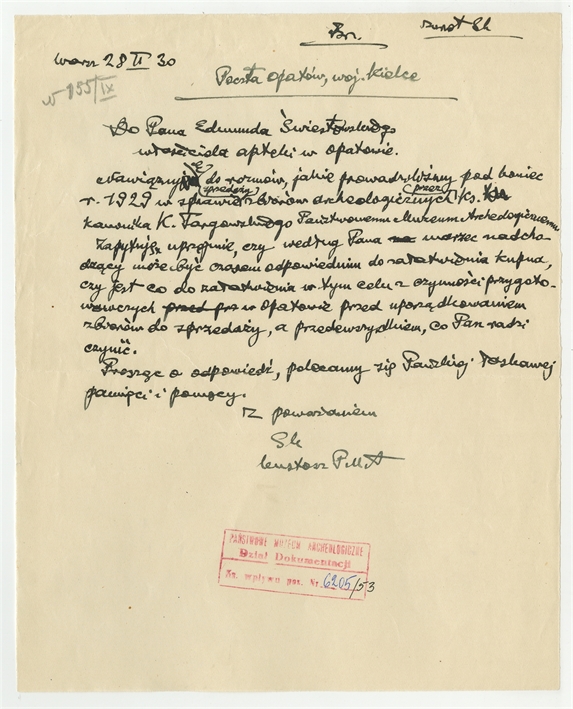 Br.
Warsz 28 II 30
155/IX
Poczta Opatów, woj. Kielce
Do Pana Edmunda Świestowskiego
właściciela apteki w Opatowie.
Nawiązuję do rozmów, jakie prowadziliśmy pod koniec
r. 1929 w sprawie sprzedaży zbiorów archeologicznych przez Ks.
kanonika K. Targowskiego Państwowemu Muzeum Archeologicznemu
Zapytuję uprzejmie, czy według Pana marzec nadcho-
dzący może być czasem odpowiednim do załatwienia kupna,
czy jest co do załatwienia w tym celu z czynności przygoto-
wawczych przed prz w Opatowie przed uporządkowaniem
zbiorów do sprzedaży, a przedewszystkiem, co Pan radzi
czynić.
Prosząc o odpowiedź, polecamy się Pańskiej łaskawej
pamięci i pomocy.
Z poważaniem
Sk
kustosz PMA
PAŃSTWOWE MUZEUM ARCHEOLOGICZNE
Dział Dokumentacji
Zn. wpływu pns. Nr. 6205/53